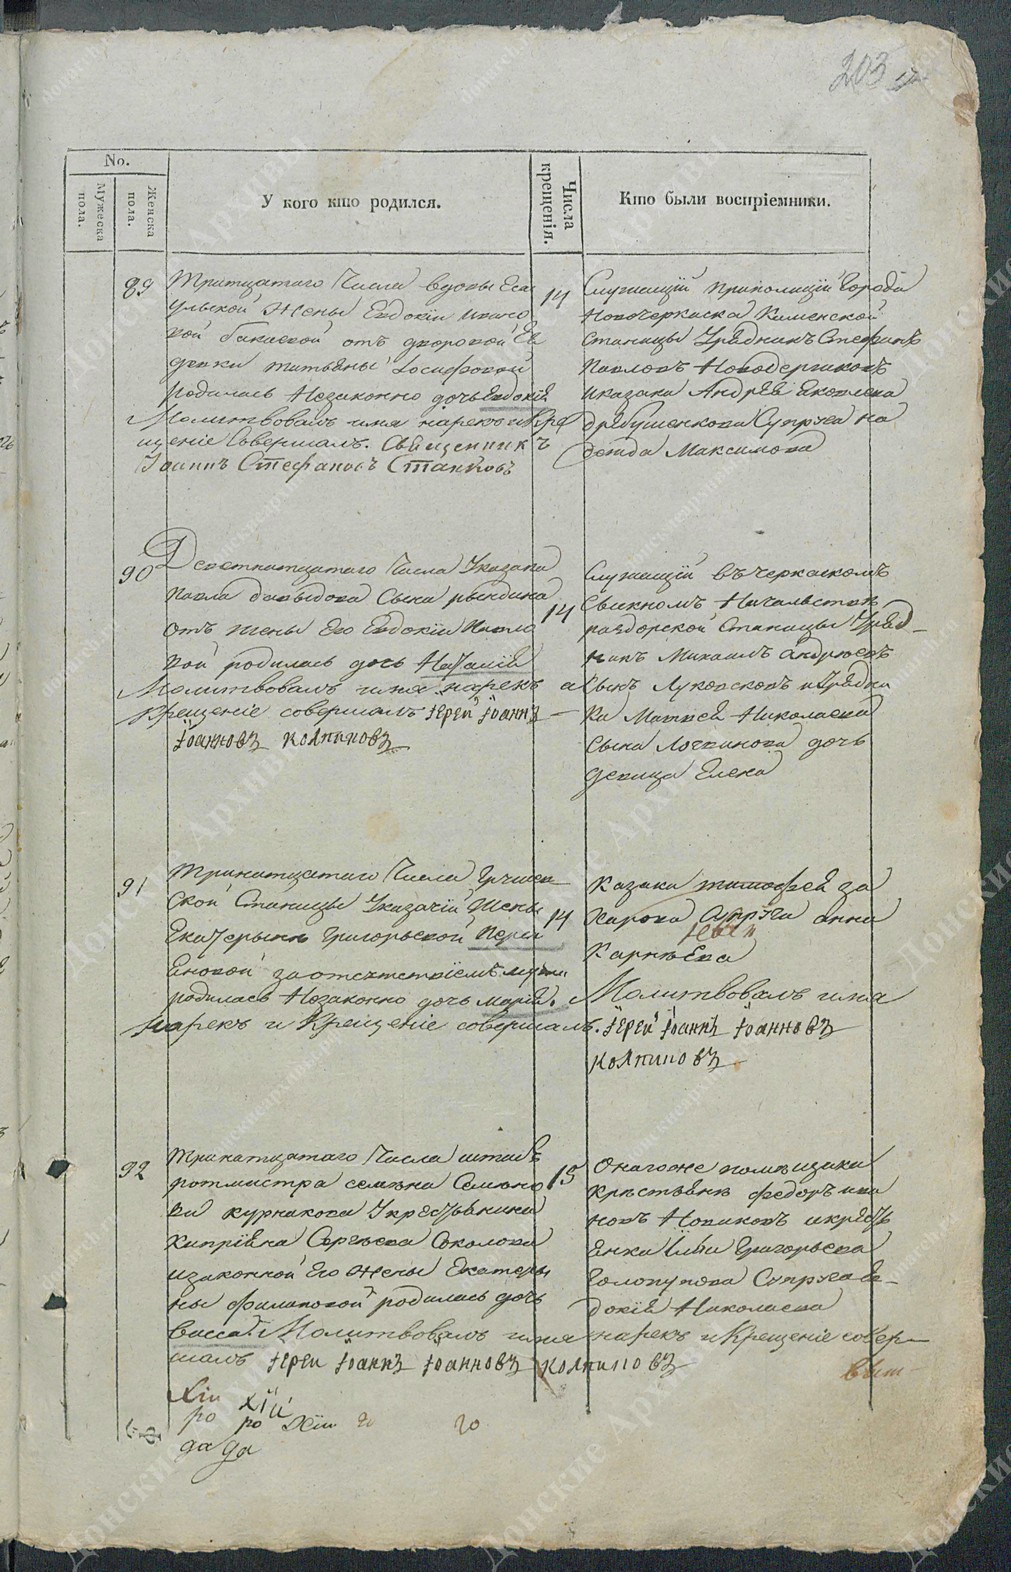 203
No.
Мужеска пола.
Женска пола.
У кого кто родился.
Числа крещенія.
Кто были воспріемники.
89
Тритцатаго Числа вдовы Еса
ульской Жены Евдокіи
отъ дворовой Де
вки татьяны Іосифовой
родилась Незаконно дочь Евдокія
Молитвовалъ имя нарекъ и Кре
щеніе Совершалъ. Священникъ
Іоаннъ Стефановъ Станковъ
14
Служащій Приполиціи Города
Новочеркаска Каменской
Станицы Урядникъ Стефанъ
Павловъ
и казака Андрея Яковлева
Супруга На
дежда Максимова
90
Числа Указака
Павла давыдова Сына рындина
отъ жены Его Евдокіи Павло
вой родилась дочь Наталія
Молитвовалъ имя нарекъ и
Крещеніе совершалъ Іерей Іоаннъ
Іоанновъ Колпиковъ
14
Служащій въ Черкаскомъ
Сыскномъ Начальстве
раздорской Станицы Уряд
никъ Михаилъ Андреевъ
Сынъ Луковсковъ и Урядни
ка Матвея Николаева
Сына дочь
девица Елена
91
Тринатцатаго Числа
ской Станицы Указачій Жены
Екатерины Григорьевой
еновой заотсутствіемъ мужа
родилась Незаконно дочь Марія.
нарекъ и Крещеніе совершалъ.
14
Казака тимофея за
харова Супруга анна
Карнеева
Молитвовалъ имя
Іерей Іоаннъ Іоанновъ
Колпиковъ
92
Тринатцатаго Числа штабъ
ротмистра семена Семено
ва курнакова Укрестьянина
Кипріяна Сергеева Соколова
изаконной Его Жены Екатери
ны филиповой родилась дочь
Васса. Молитвовалъ имя нарекъ и Крещеніе совер
шалъ Іерей Іоаннъ Іоанновъ Колпиковъ
15
Онагоже помещика
Крестьянъ федоръ ива
новъ Новиковъ и крестъ
янки Ильи Григорьева
Голопупова Супруга Ев
докія Николаева
ро ро
да да